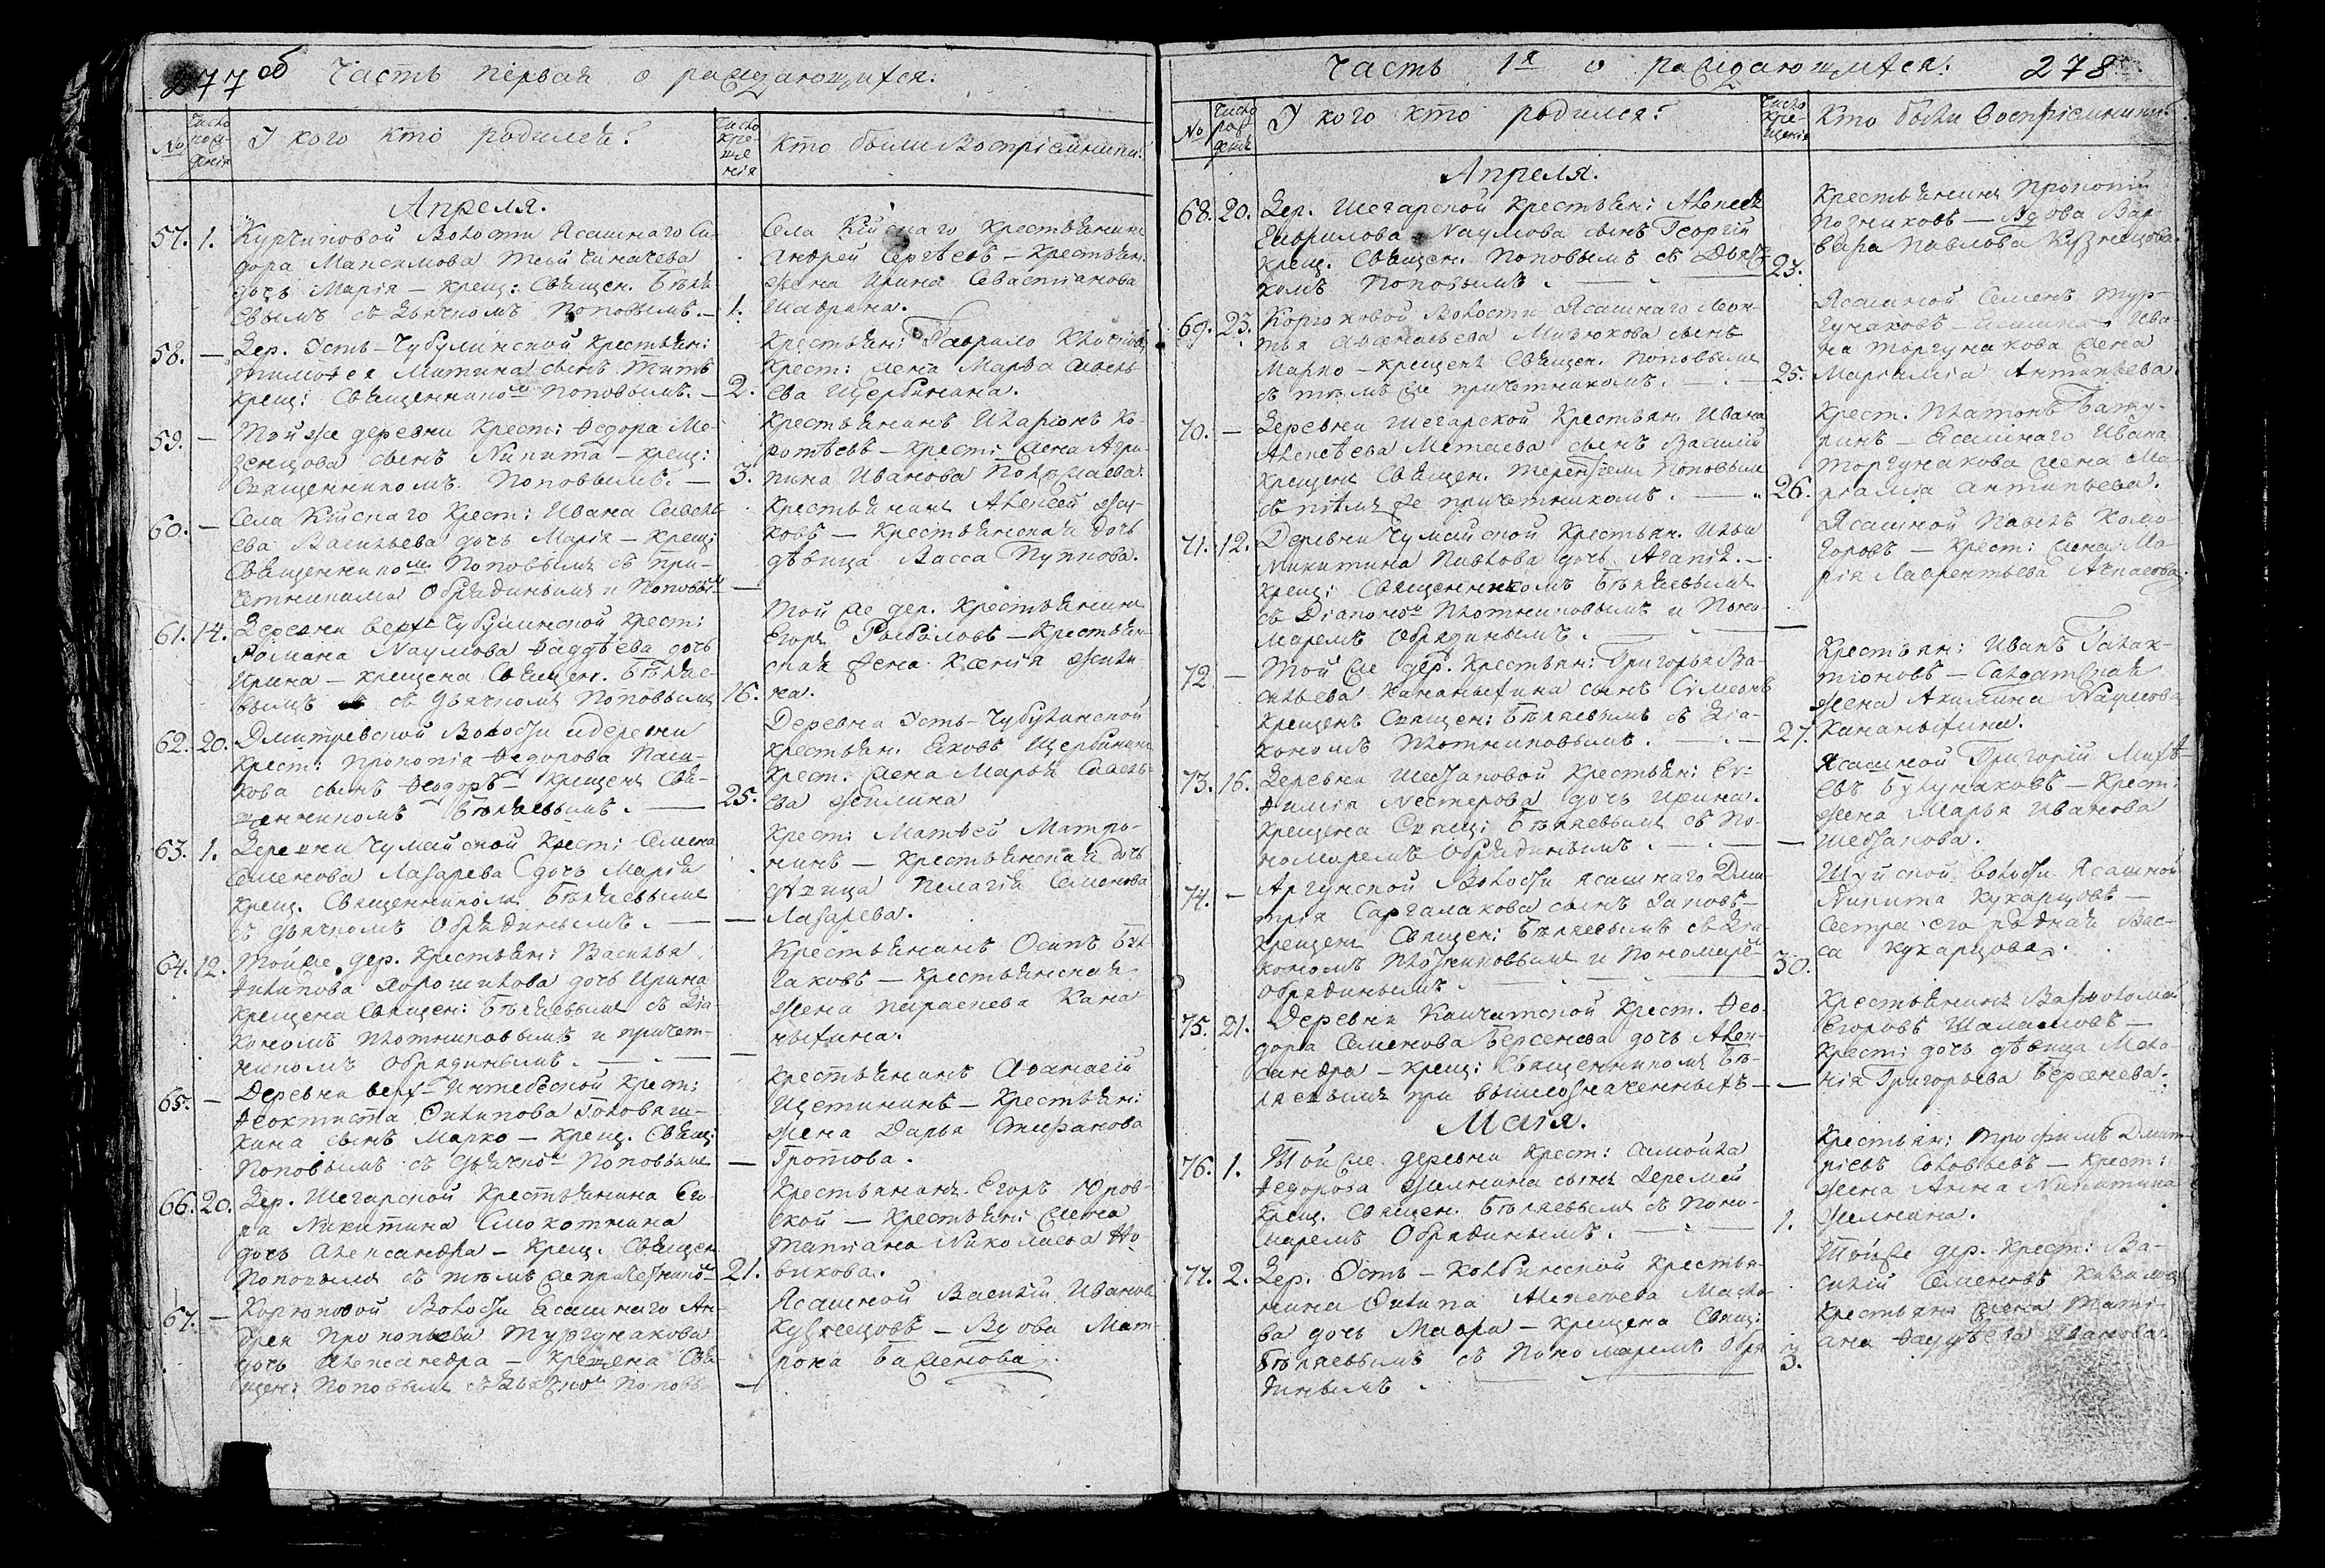 277 об Часть первая о раждающихся.
№
Число рож-
денія
У кого кто родился?
Число
кре-
ще
нія
Кто были Воспріемники?
Апреля.
57. 1. Курчиковой Волости Ясашнаго Си-
дора Максимова
дочь Марія — крещ: Священ. Бѣля
евымъ съ Дьячкомъ Поповымъ. — 1.
Села Кійскаго крестьянинъ
Андрей Сергѣевъ — крестьян.
жена Ирина Севастіанова
Шаврина.
58. — Дер. Усть-Чубулинской крестьян:
Тимофея Митина сынъ Титъ
крещ: Священникомъ Поповымъ. — 2.
Крестьян: Гаврило
Крест: жена Марѳа Савель
ева Щербинина.
59. — Той же деревни Крест: Федора Ме-
зенцова сынъ Никита — крещ:
Священникомъ Поповымъ. — 3.
Крестьянинъ Иларіонъ Ко-
ротѣевъ — крест: жена Агри-
пина Иванова
60. — Села Кійскаго Крест: Ивана Савель
ева Васильева дочь Марія — крещ:
Священникомъ Поповымъ съ при-
четниками Обрядинымъ и Поповым —
Крестьянинъ Алексей Жу-
ковъ — Крестьянская дочь
дѣвица Васса Пупкова.
61. 14. Деревни верхъ Чубулинской крест:
Романа Наумова Фаддѣева дочь
Ирина — крещена Священ. Бѣляе-
вымъ съ Дьячкомъ Поповымъ 16.
Той же дер. Крестьянинъ
Егоръ Рыболовъ — Крестьян-
ская жена Ксенія Жили
на.
62. 20. Дмитревской Волости и деревни
Крест: Прокопія Федорова Паш-
кова сынъ Феодоръ — крещенъ Свя-
щенникомъ Бѣляевымъ. — 25.
Деревни Усть-Чубулинской
крестьян. Яковъ Щербининъ
Крест: жена Марья Савель-
ева Жилина
63. 1. Деревни Чумайской Крест: Семена
Семенова Лазарева дочь Марія
крещ. Священникомъ Бѣляевымъ
съ дьячкомъ Обрядинымъ. — —
Крест: Матвей Матро-
нинъ — Крестьянская дочь
дѣвица Пелагія Семенова
Лазарева.
64. 12. Той же дер. Крестьян: Василья
Филипова Хорошилова дочь Ирина
крещена Священ: Бѣляевымъ съ Діа
кономъ Плотниковымъ и причет-
никомъ Обрядинымъ. — —
Крестьянинъ Осипъ Бы-
чаковъ — Крестьянская
жена Параскева Кана
ныхина.
65. — Деревни верхъ Антибеской Крест:
Феоктиста Филипова Головаги-
кина сынъ Марко — крещ. Свящ:
Поповымъ съ Дьячком Поповымъ —
Крестьянинъ Афанасій
Щетининъ — Крестьян:
жена Дарья Стефанова
Гротова.
66. 20. Дер. Шегарской Крестьянина Его-
ра Никитина Смокотнина
дочь Александра — крещ. Священ
Поповымъ съ тѣмъ же причетником 21.
Крестьянинъ Егоръ Юров-
ской — Крестьян: жена
Татіана Николаева Но-
викова.
67. — Корюковой Волости Ясашнаго Ан-
дрея Прокопьева Тургунакова
дочь Александра — крещена Свя-
щен: Поповымъ съ Дьячком Поповы —
Ясашной Василій Ивановъ
Кузнецовъ — Вдова Мат-
рона Баженова.
Часть 1я о раждающихся. 278
№
Число
рож
денія
У кого кто родился?
Число
Кре-
щенія
Кто были Воспріемники?
Апреля.
68. 20. Дер. Шегарской крестьян: Алексея
Гаврилова Наумова сынъ Георгій
крещ. Священ. Поповымъ съ Дьяч-
комъ Поповымъ. — 23.
Крестьянинъ Прокопій
Почниковъ — Вдова Вар-
вара Павлова Кузнецова.
69. 23. Корюковой Волости Ясашнаго Леон-
тья Афанасьева Мизюкова сынъ
Марко — крещенъ Священ. Поповымъ
съ тѣмъ же причетникомъ. — 25.
Ясашной Семенъ Тур-
гунаковъ — Ясашнаго Ива-
на Торгунакова жена
Маріамія Антипьева.
70. — Деревни Шегарской Крестьян. Ивана
Алексѣева Метаева сынъ Василій
крещенъ Священ. Терентіем Поповымъ
съ тѣмъ же причетникомъ. — 26.
Крест. Платонъ Бату-
ринъ — Ясашнаго Ивана
Торгунакова жена Ма-
ріамія Антипьева.
71. 12. Деревни Чумайской Крестьян. Ильи
Никитина Павлова дочь Агапія. —
крещ: Священникомъ Бѣляевымъ
съ Діаконом Плотниковымъ и Поно-
маремъ Обрядинымъ. — —
Ясашной Павелъ Холмо-
горовъ — Крест: жена Ма-
рія Лаврентьева
72 — Той же дер. Крестьян: Григорья Ва-
сильева Кананыхина сынъ Симеонъ
крещенъ Священ: Бѣляевымъ съ Діа-
кономъ Плотниковымъ. — 27.
Крестьян: Иванъ Галак-
тіоновъ — Салдатская
жена Акилина Наумова
Кананыхина.
73. 16. Деревни Шестаковой Крестьян: Ев-
фимія Нестерова дочь Ирина.
крещена Свящ: Бѣляевымъ съ По-
номаремъ Обрядинымъ. — —
Ясашной Григорій Михѣ-
евъ Булунаковъ — Крест:
жена Марья Иванова
Шестакова.
74. — Аргунской Волости Ясашнаго Дми
трія Саргалакова сынъ Іаковъ —
крещенъ Священ: Бѣляевымъ съ Діа
кономъ Плотниковымъ и Пономаре-
Обрядинымъ. — 30.
Шуйской Волости Ясашной
Никита Кухарцовъ —
Сестра его родная Вас-
са Кухарцова.
75. 21. Деревни Камчатской Крест. Фео-
дора Семенова Берсенева дочь Алек-
сандра — крещ: Священникомъ Бѣ-
ляевымъ при вышеозначенныхъ — —
Крестьянинъ Варфоломей
Егоровъ Шаламовъ —
Крест: дочь дѣвица Мела-
нія Григорьева Берсенева.
Маія.
76. 1. Той же деревни Крест: Самойла
Федорова Желнина сынъ Іеремей
крещ. Священ. Бѣляевымъ съ Поно-
маремъ Обрядинымъ. — 1.
Крестьян: Трофимъ Дмит-
ріевъ Соловьевъ — Крест:
жена Анна Никитина
Желнина.
77. 2. Дер. Усть-Колбинской Крестья-
нина Филипа Алексеева Масло
ва дочь Мавра — крещена Свящ:
Бѣляевымъ съ Пономаремъ Обря
динымъ. — 3.
Той же дер. Крест: Ва-
силій Семеновъ
Крестьян: жена Тати-
ана Фаддѣева Иванова.